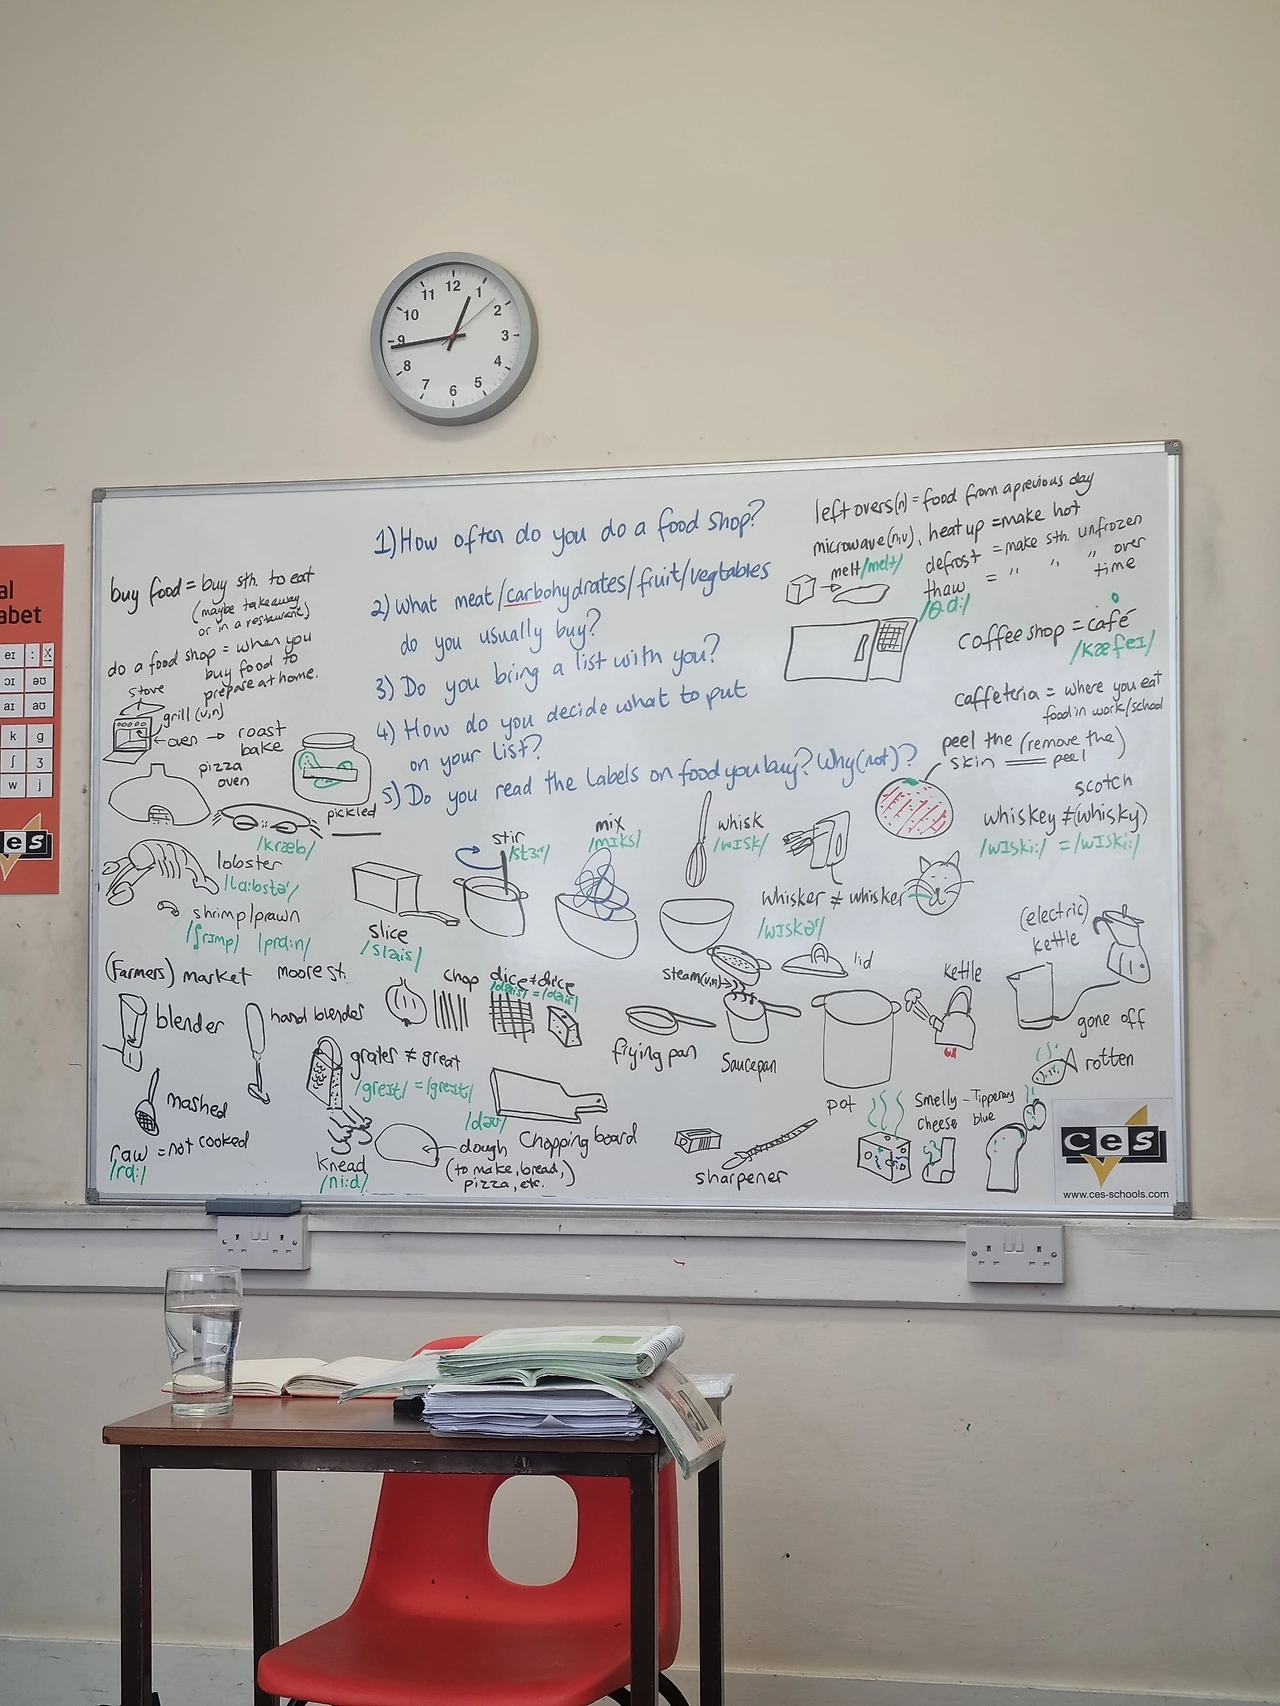 11 12 1
10 2
9 3
8 4
7 6 5
al
abet
eɪ : X
ɔɪ əʊ
aɪ aʊ
k g
ʃ ʒ
w j
es
1) How often do you do a food shop?
2) What meat/carbohydrates/fruit/vegtables
do you usually buy?
3) Do you bring a list with you?
4) How do you decide what to put
on your list?
5) Do you read the labels on food you buy? Why(not)?
buy food = buy sth. to eat
(maybe takeaway
or in a restaurant)
do a food shop = when you
buy food to
prepare at home.
stove
grill (v,n)
oven → roast
bake
pizza
oven
pickled
/kræb/
lobster
/lɑ:bstər/
shrimp/prawn
/ʃrɪmp/ /prɑ:n/
(farmers) market moore st.
blender
hand blender
mashed
raw = not cooked
/rɑ:/
left overs(n) = food from a previous day
microwave(n,v), heat up = make hot
melt /melt/
defrost = make sth. unfrozen
thaw = " " " over
time
/θɑ:/
coffee shop = café
/kæfeɪ/
caffeteria = where you eat
food in work/school
peel the (remove the)
skin peel
scotch
whiskey ≠ (whisky)
/wɪski:/ = /wɪski:/
stir
/stɜr/
mix
/mɪks/
whisk
/wɪsk/
whisker ≠ whisker
/wɪskər/
slice
/slaɪs/
chop
dice ≠ dice
/daɪs/ = /daɪs/
grater ≠ great
/greɪt/ = /greɪt/
knead
/ni:d/
dough
(to make, bread,
pizza, etc.)
chopping board
frying pan
steam(v,n)
saucepan
lid
pot
kettle
(electric)
kettle
gone off
rotten
sharpener
Smelly - Tipperary
cheese blue
ces
www.ces-schools.com